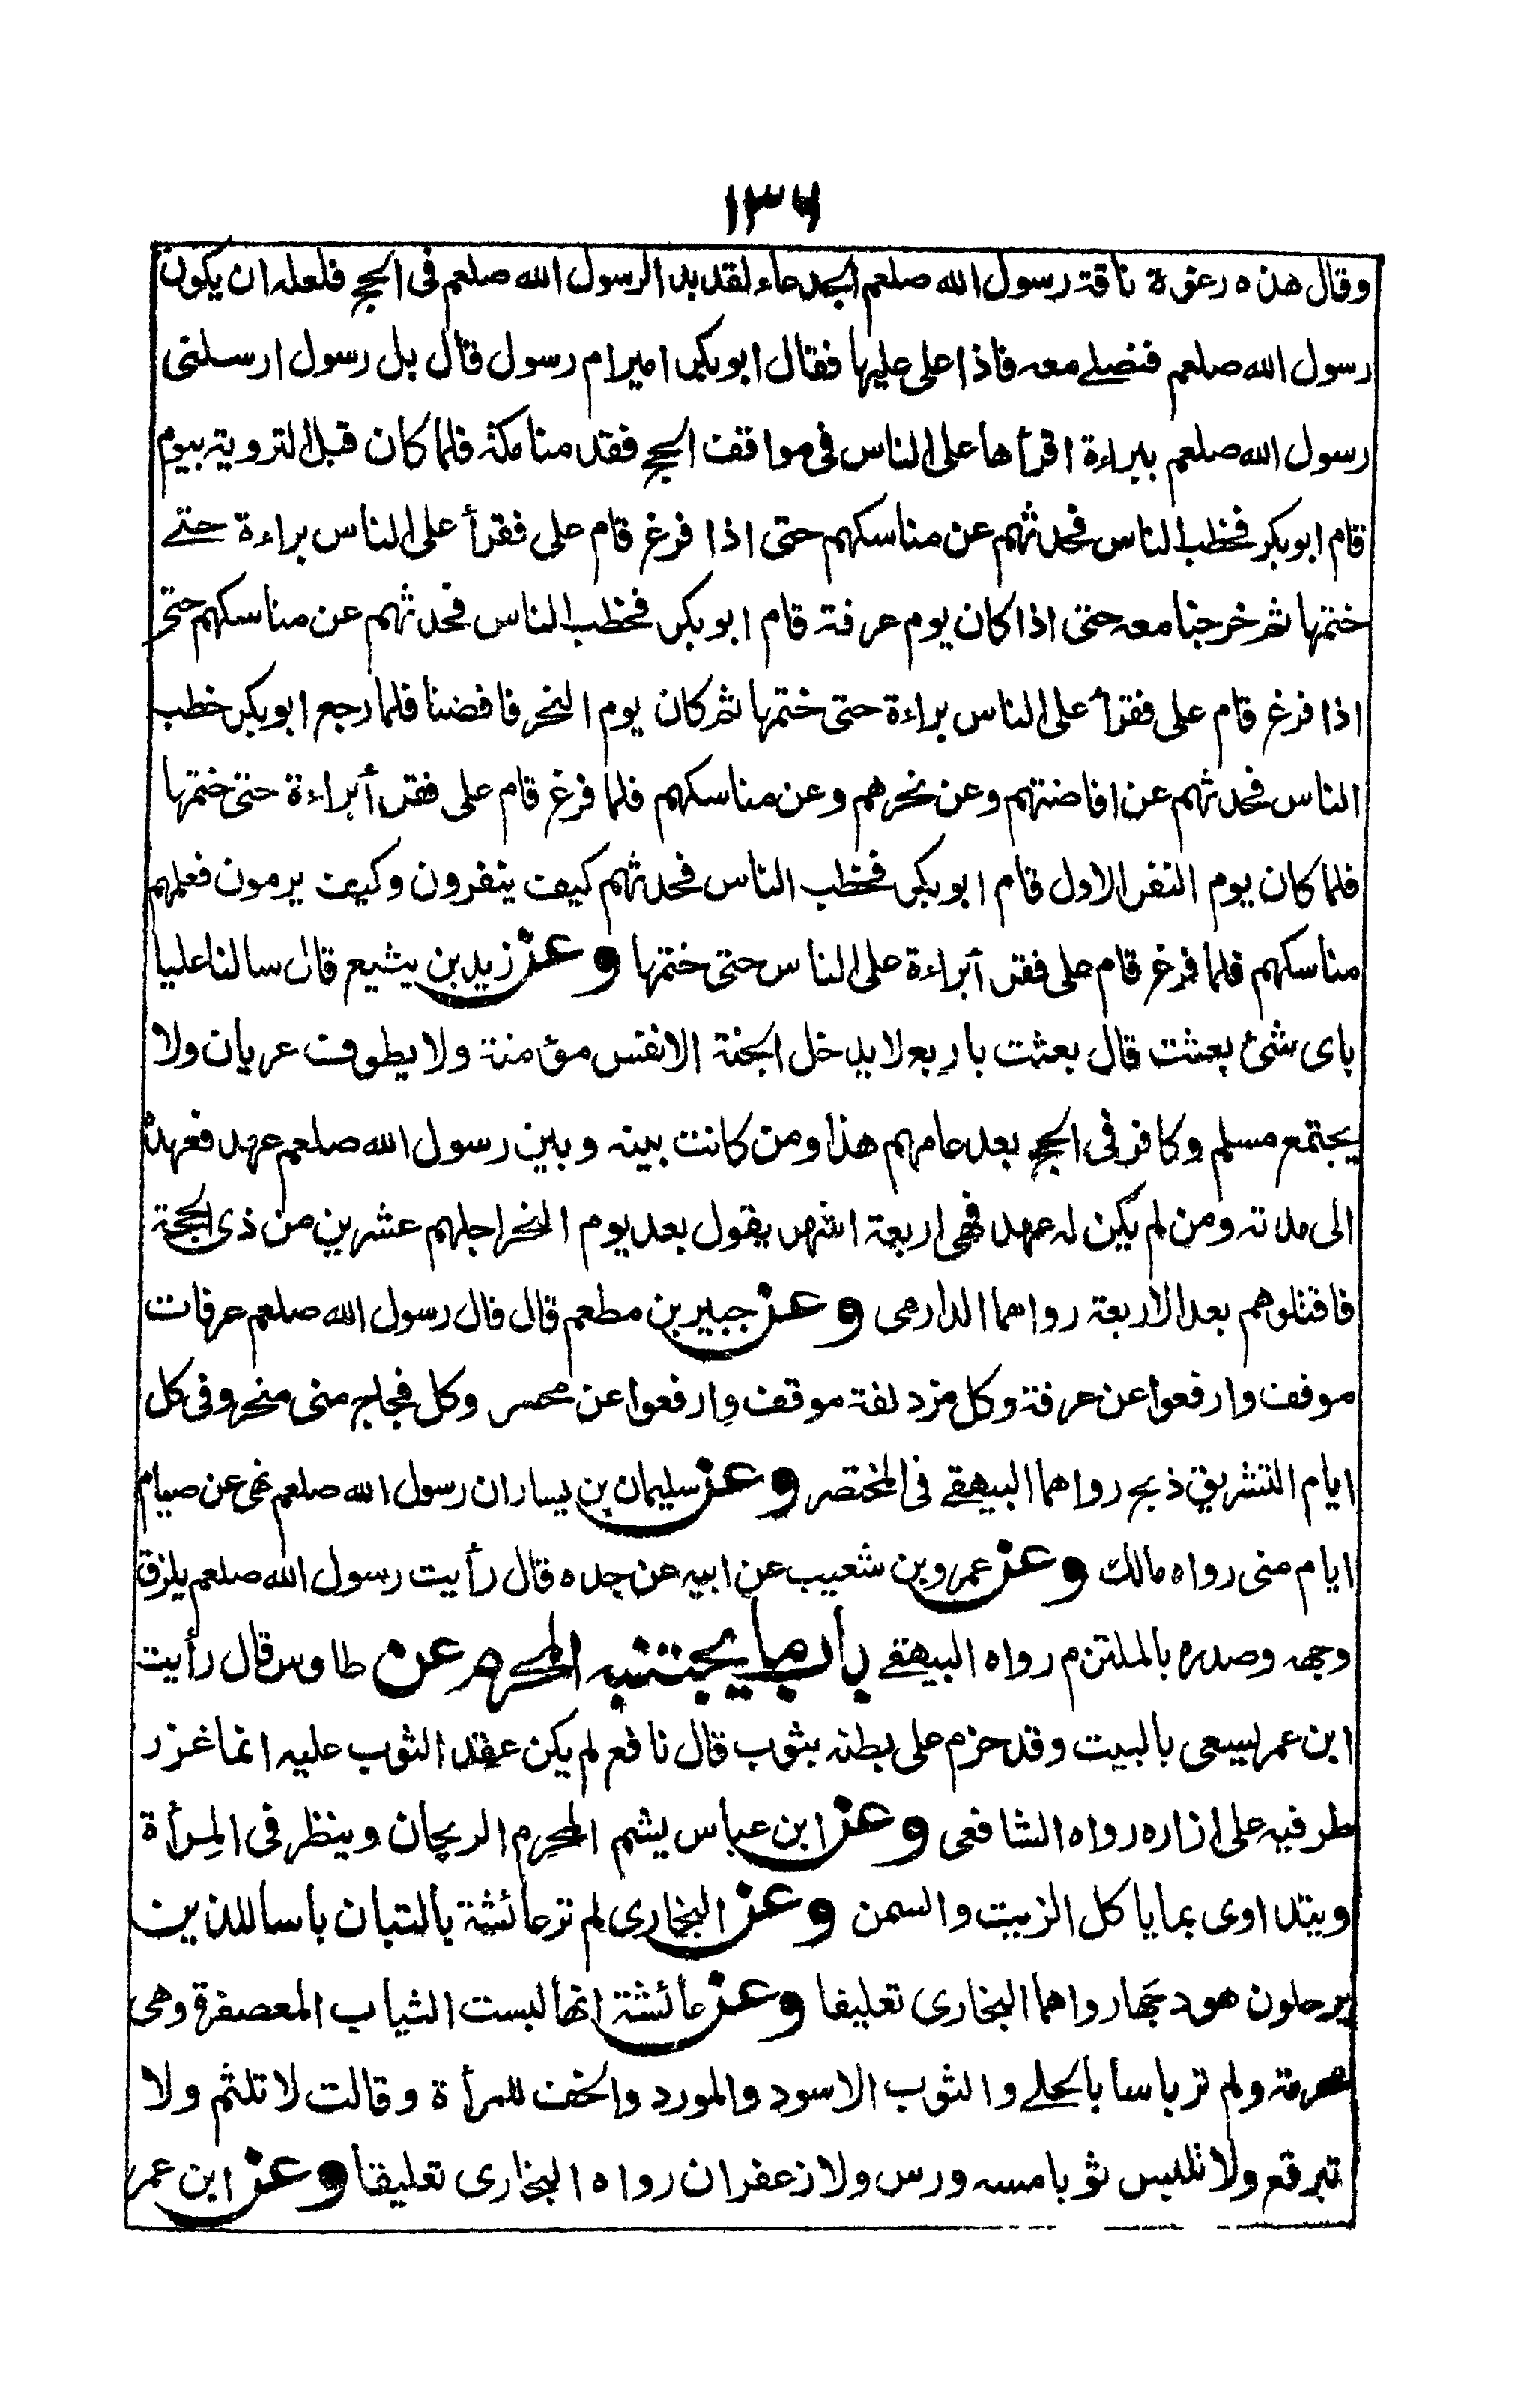 ١٣٦
وقال هذه رغوة ناقة رسول الله صلعم الجدعاء لقد بدا لرسول الله صلعم في الحج فلعله ان يكون
رسول الله صلعم فنصلے معه فاذا علي عليها فقال ابوبكر امير ام رسول قال بل رسول ارسلني
رسول الله صلعم ببراءة اقرأها على الناس في مواقف الحج فقدمنا مكة فلما كان قبل التروية بيوم
قام ابوبكر فخطب الناس فحدثهم عن مناسكهم حتى اذا فرغ قام علي فقرأ على الناس براءة حتے
ختمها ثم خرجنا معه حتى اذا كان يوم عرفة قام ابوبكر فخطب الناس فحدثهم عن مناسكهم حتى
اذا فرغ قام علي فقرأ على الناس براءة حتى ختمها ثم كان يوم النحر فافضنا فلما رجع ابوبكر خطب
الناس فحدثهم عن افاضتهم وعن نحرهم وعن مناسكهم فلما فرغ قام علي فقرأ براءة حتى ختمها
فلما كان يوم النفر الاول قام ابوبكر فخطب الناس فحدثهم كيف ينفرون وكيف يرمون فعلمهم
مناسكهم فلما فرغ قام علي فقرأ براءة على الناس حتى ختمها وعن زيد بن يثيع قال سالنا عليا
باى شئ بعثت قال بعثت باربع لا يدخل الجنة الا نفس مؤمنة ولا يطوف عريان ولا
يجتمع مسلم وكافر في الحج بعد عامهم هذا ومن كانت بينه وبين رسول الله صلعم عهد فعهده
الى مدته ومن لم يكن له عهد فهي اربعة اشهر يقول بعد يوم النحر اجلهم عشرين من ذي الحجة
فاقتلوهم بعد الاربعة رواهما الدارمي وعن جبير بن مطعم قال قال رسول الله صلعم عرفات
موقف وارفعوا عن عرفة وكل مزدلفة موقف وارفعوا عن محسر وكل فجاج منى منحر وفي كل
ايام التشريق ذبح رواهما البيهقے في المختصر وعن سليمان بن يسار ان رسول الله صلعم نهى عن صيام
ايام منى رواه مالك وعن عمرو بن شعيب عن ابيه عن جده قال رأيت رسول الله صلعم يلزق
وجهه وصدره بالملتزم رواه البيهقے باب ما يجتنبه المحرم عن طاوس قال رأيت
ابن عمر يسعى بالبيت وقد حزم على بطنه بثوب قال نافع لم يكن عقد الثوب عليه انما غزر
طرفيه على ازاره رواه الشافعي وعن ابن عباس يشم المحرم الريحان وينظر في المرأة
ويتداوى بما ياكل الزيت والسمن وعن البخاري لم تر عائشة بالتبان باسا للذين
يرحلون هودجها رواهما البخاري تعليقا وعن عائشة انها لبست الثياب المعصفرة وهي
محرمة ولم تر باسا بالحلے والثوب الاسود والمورد والخف للمرأة وقالت لا تلثم ولا
تبرقع ولا تلبس ثوبا مسه ورس ولا زعفران رواه البخاري تعليقا وعن ابن عمر